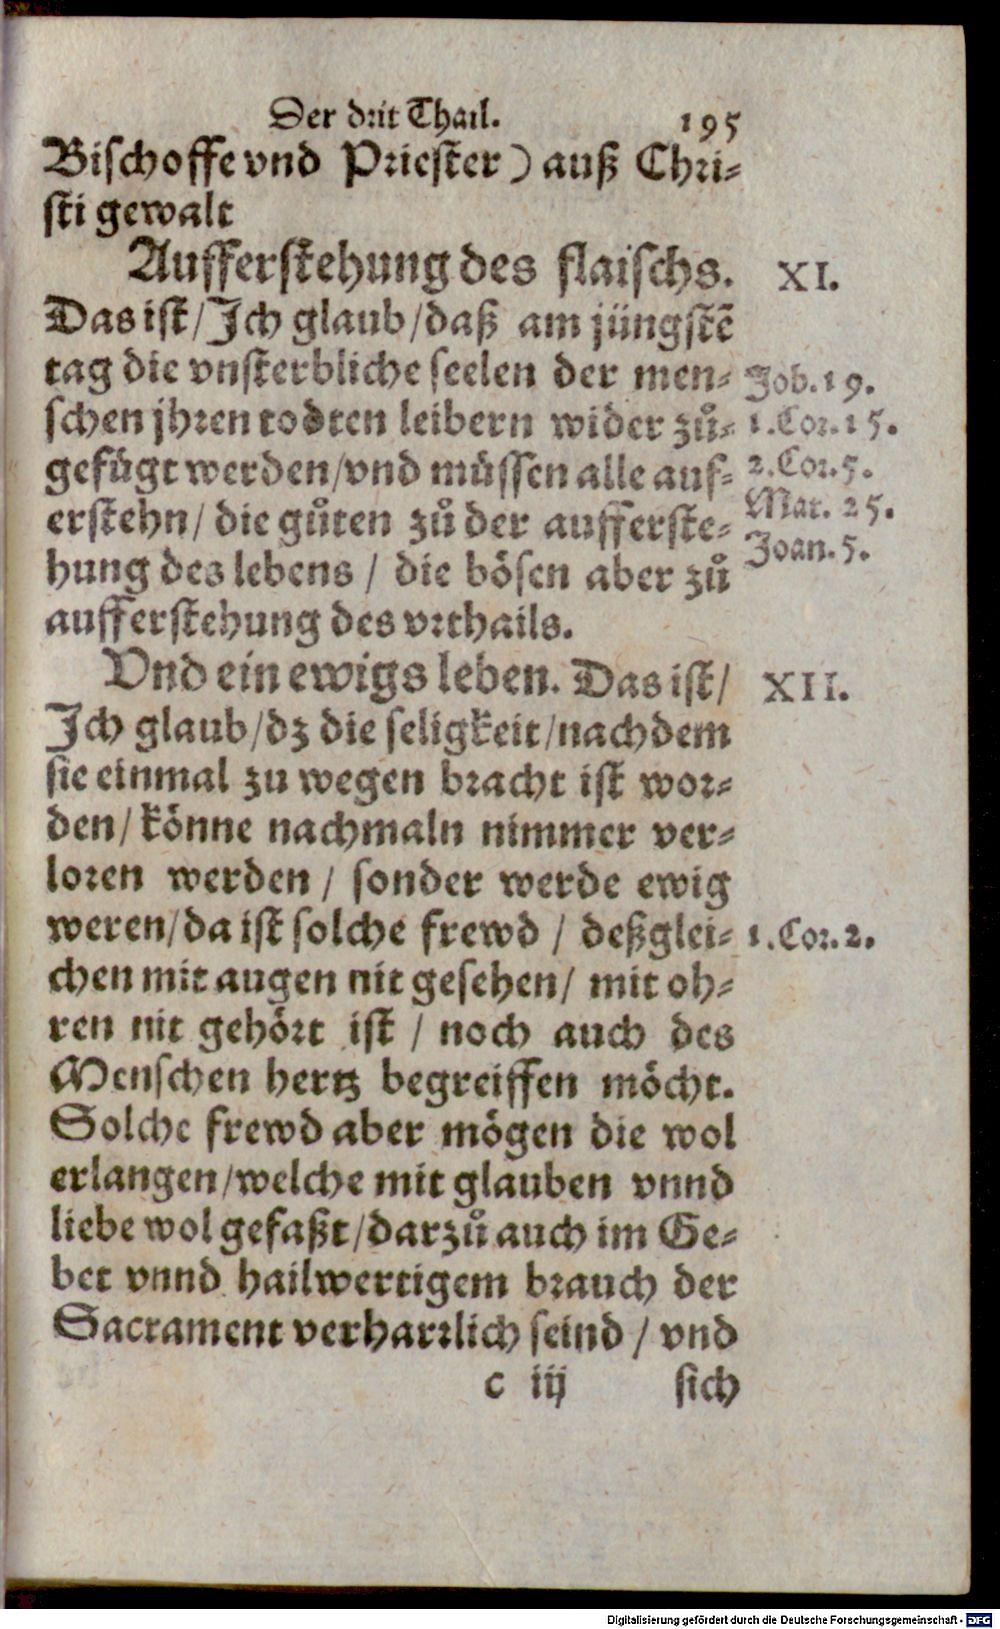 Der drit Thail. 195
Bischoffe vnd Priester) auß Chri-
sti gewalt
Aufferstehung des flaischs. XI.
Das ist/Ich glaub/daß am jüngstē
tag die vnsterbliche seelen der men- Job. 19.
schen jhren todten leibern wider zů- 1. Cor. 15.
gefügt werden/vnd müssen alle auf- 2. Cor. 5.
erstehn/ die gůten zů der aufferste- Mat. 25.
hung des lebens / die bösen aber zů Joan. 5.
aufferstehung des vrthails.
Vnd ein ewigs leben. Das ist/ XII.
Ich glaub/dz die seligkeit/nachdem
sie einmal zu wegen bracht ist wor-
den/ könne nachmaln nimmer ver-
loren werden / sonder werde ewig
weren/da ist solche frewd / deßglei- 1. Cor. 2.
chen mit augen nit gesehen/ mit oh-
ren nit gehört ist / noch auch des
Menschen hertz begreiffen möcht.
Solche frewd aber mögen die wol
erlangen/welche mit glauben vnnd
liebe wol gefaßt/darzů auch im Ge-
bet vnnd hailwertigem brauch der
Sacrament verharrlich seind / vnd
c iij sich
Digitalisierung gefördert durch die Deutsche Forschungsgemeinschaft - DFG